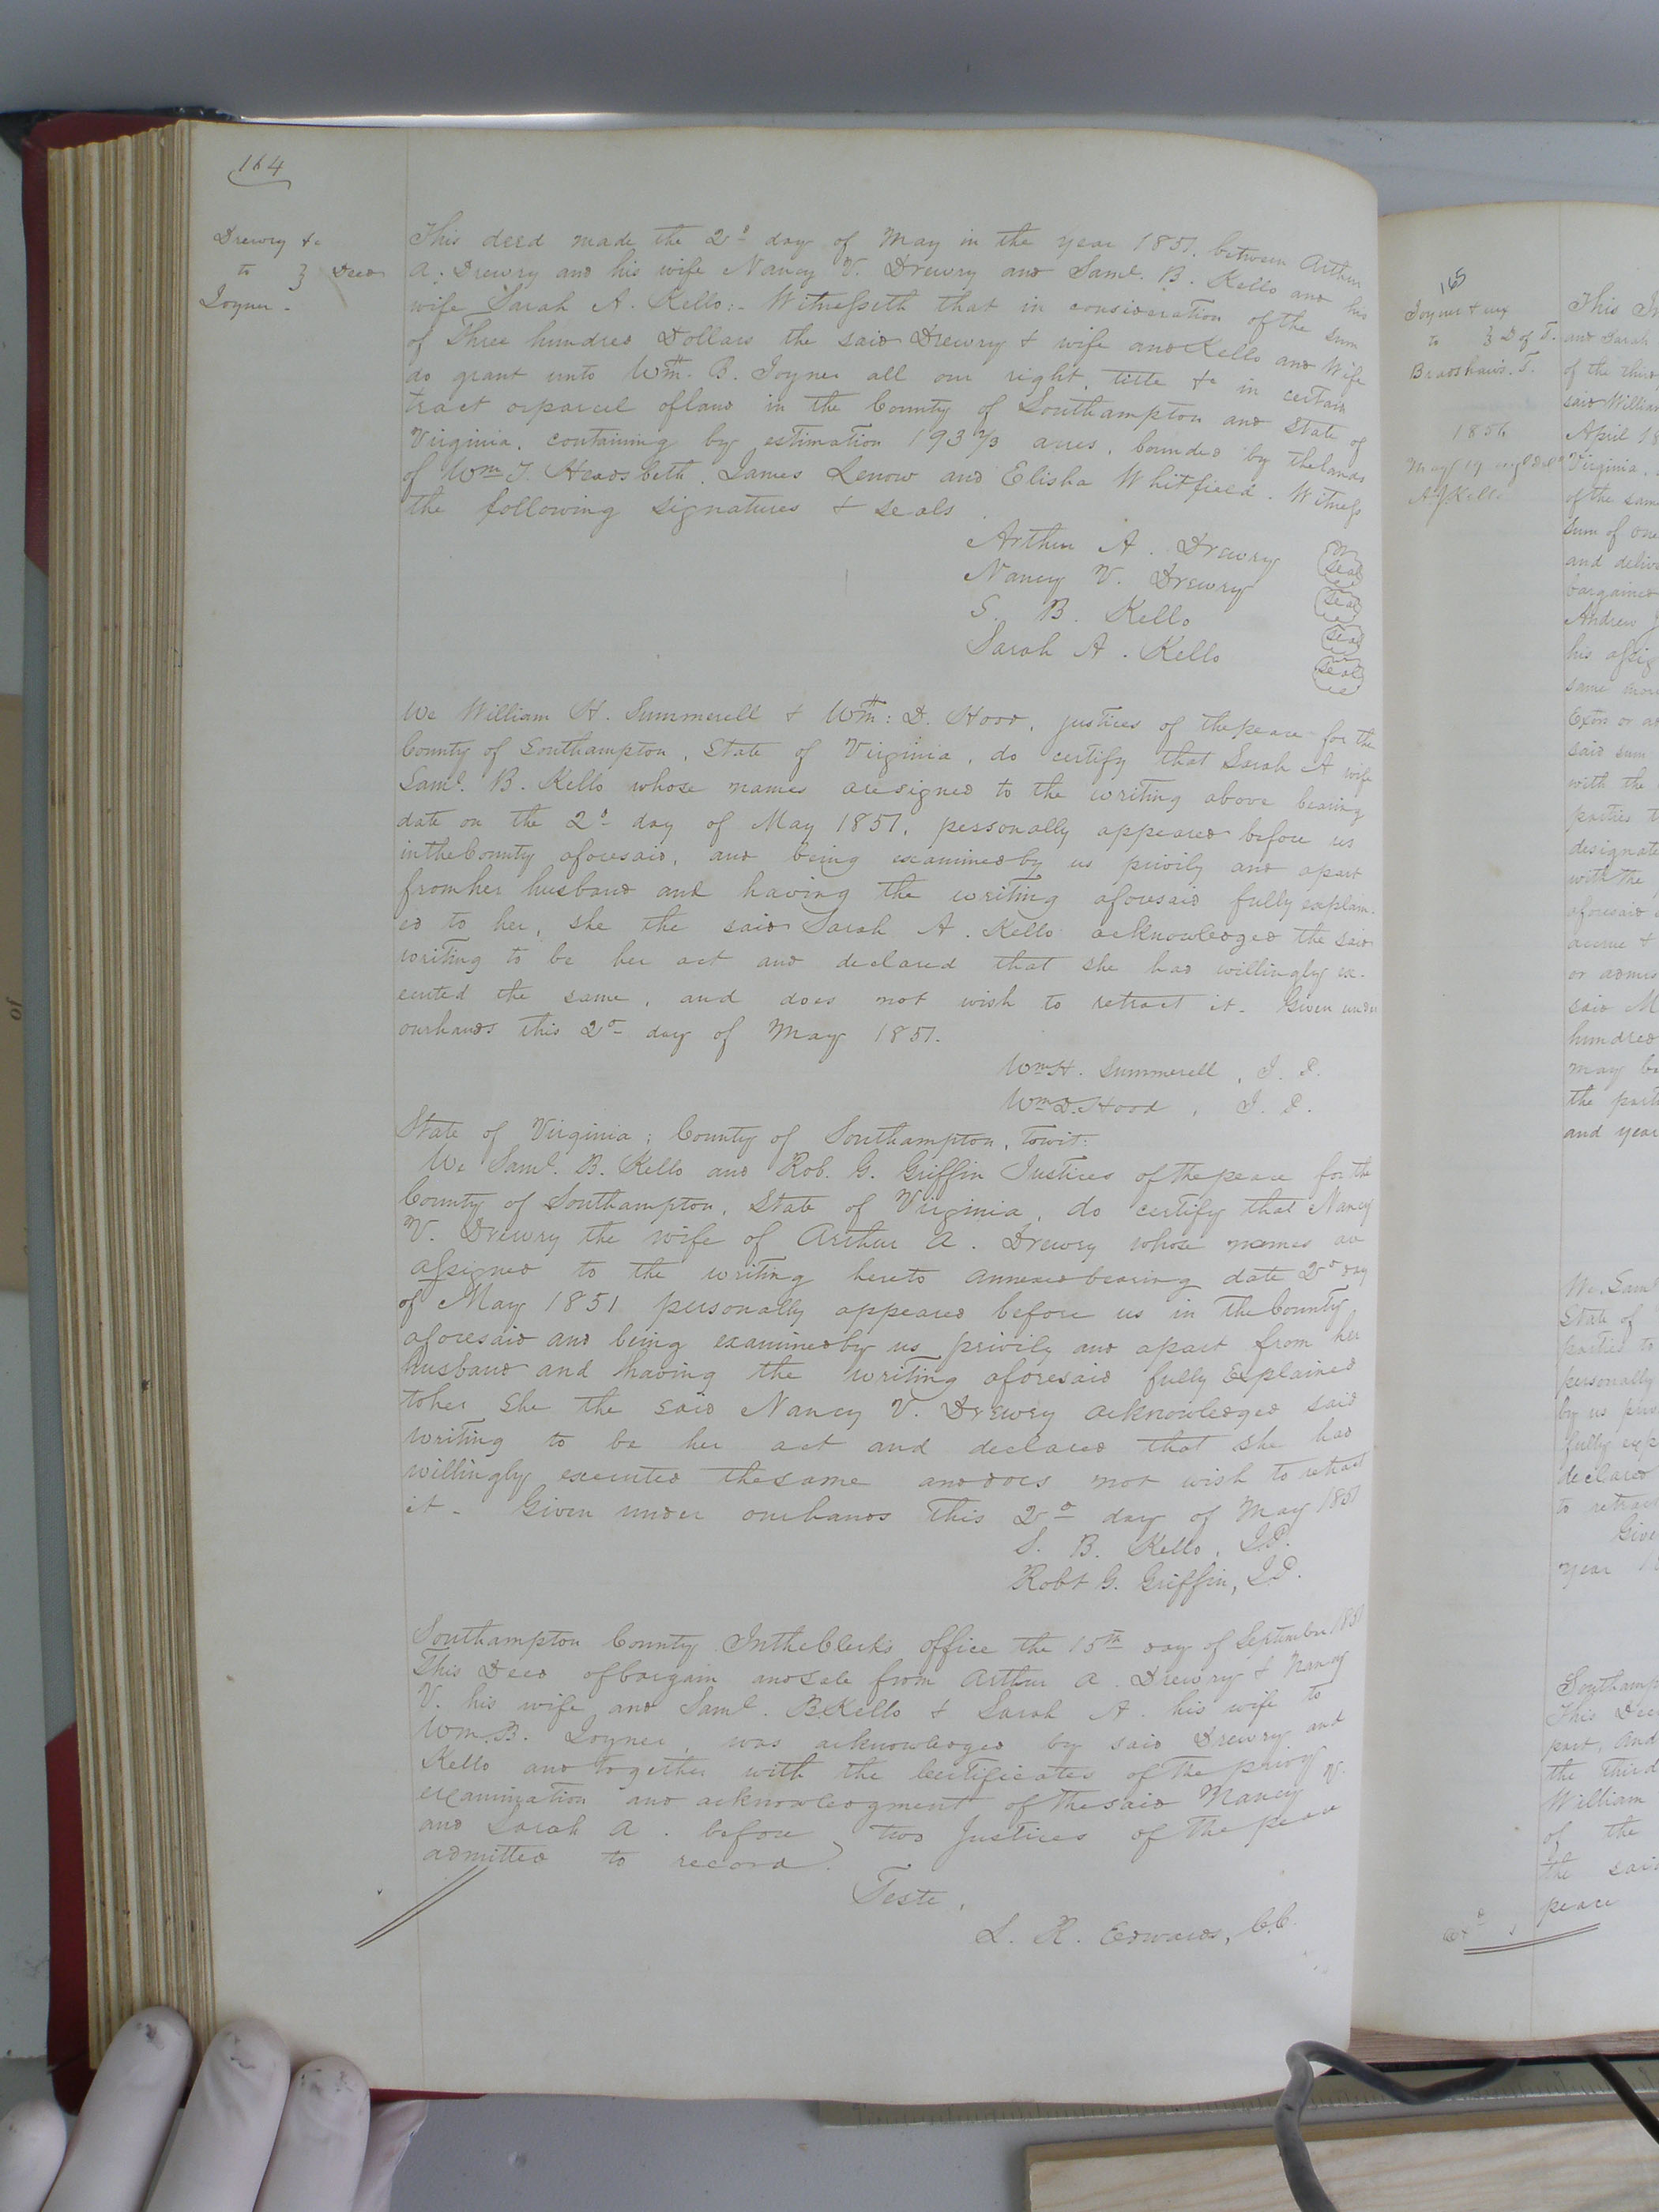 164
Drewry &c
to } Deed
Joyner.
This deed made the 2d day of May in the year 1851. between Arthur
A. Drewry and his wife Nancy V. Drewry and Saml. B. Kello and his
wife Sarah A. Kello:- Witnesseth that in consideration of the sum
of Three hundred Dollars the said Drewry & wife and Kello and Wife
do grant unto Wm. B. Joyner all our right, title &c in certain
tract or parcel of land in the County of Southampton and State of
Virginia, containing by estimation 193 2/3 acres, bounded by the lands
of Wm J. Headsbeth, James Lenow and Elisha Whitfield. Witness
the following signatures & seals.
Arthur A. Drewry Seal
Nancy V. Drewry Seal
S. B. Kello Seal
Sarah A. Kello Seal
We William H. Summerell & Wm: D. Hood, justices of the peace for the
County of Southampton, State of Virginia, do certify that Sarah A wife
Saml. B. Kello whose names are signed to the writing above bearing
date on the 2d day of May 1851, personally appeared before us
in the County aforesaid, and being examined by us privily and apart
from her husband and having the writing aforesaid fully explain-
ed to her, she the said Sarah A. Kello acknowledged the said
writing to be her act and declared that she had willingly ex-
ecuted the same, and does not wish to retract it. Given under
our hands this 2d day of May 1851.
Wm H. Summerell, J. P.
Wm D. Hood, J. P.
State of Virginia; County of Southampton, Towit:
We Saml. B. Kello and Rob. G. Griffin Justices of the peace for the
County of Southampton, State of Virginia, do certify that Nancy
V. Drewry the wife of Arthur A. Drewry whose names are
assigned to the writing hereto annexed bearing date 2d day
of May 1851 personally appeared before us in the County
aforesaid and being examined by us privily and apart from her
husband and having the writing aforesaid fully Explained
to her she the said Nancy V. Drewry acknowledged said
writing to be her act and declared that she had
willingly executed the same and does not wish to retract
it- Given under our hands this 2d day of May 1851
S. B. Kello, J.P.
Robt G. Griffin, J.P.
Southampton County In the Clerk's office the 15th day of September 1851
This Deed of bargain and sale from Arthur A. Drewry & Nancy
V. his wife and Saml. B. Kello & Sarah A. his wife to
Wm. B. Joyner, was acknowledged by said Drewry and
Kello and together with the Certificates of the privy
examination and acknowledgment of the said Nancy V.
and Sarah A. before two Justices of the peace
admitted to record.
Teste,
L. R. Edwards, C.C.
165
Joyner & ux
to } D of T.
Bradshaw. T.
1856
A. J. Kello
This In
and Sarah
of the third
said William
April 18
Virginia.
of the same
sum of one
and deliv
bargained
Andrew J
his assig
same mon
Extrs or ad
said sum
with the
parties t
designate
with the
aforesaid
accrue &
or admin
said M
hundred
may be
the part
and year
We Saml
State of
parties to
personally
by us priv
fully exp
declared
to retract
Give
year 18
Southamp
This Dee
part, and
the third
William
of the
the said
peace